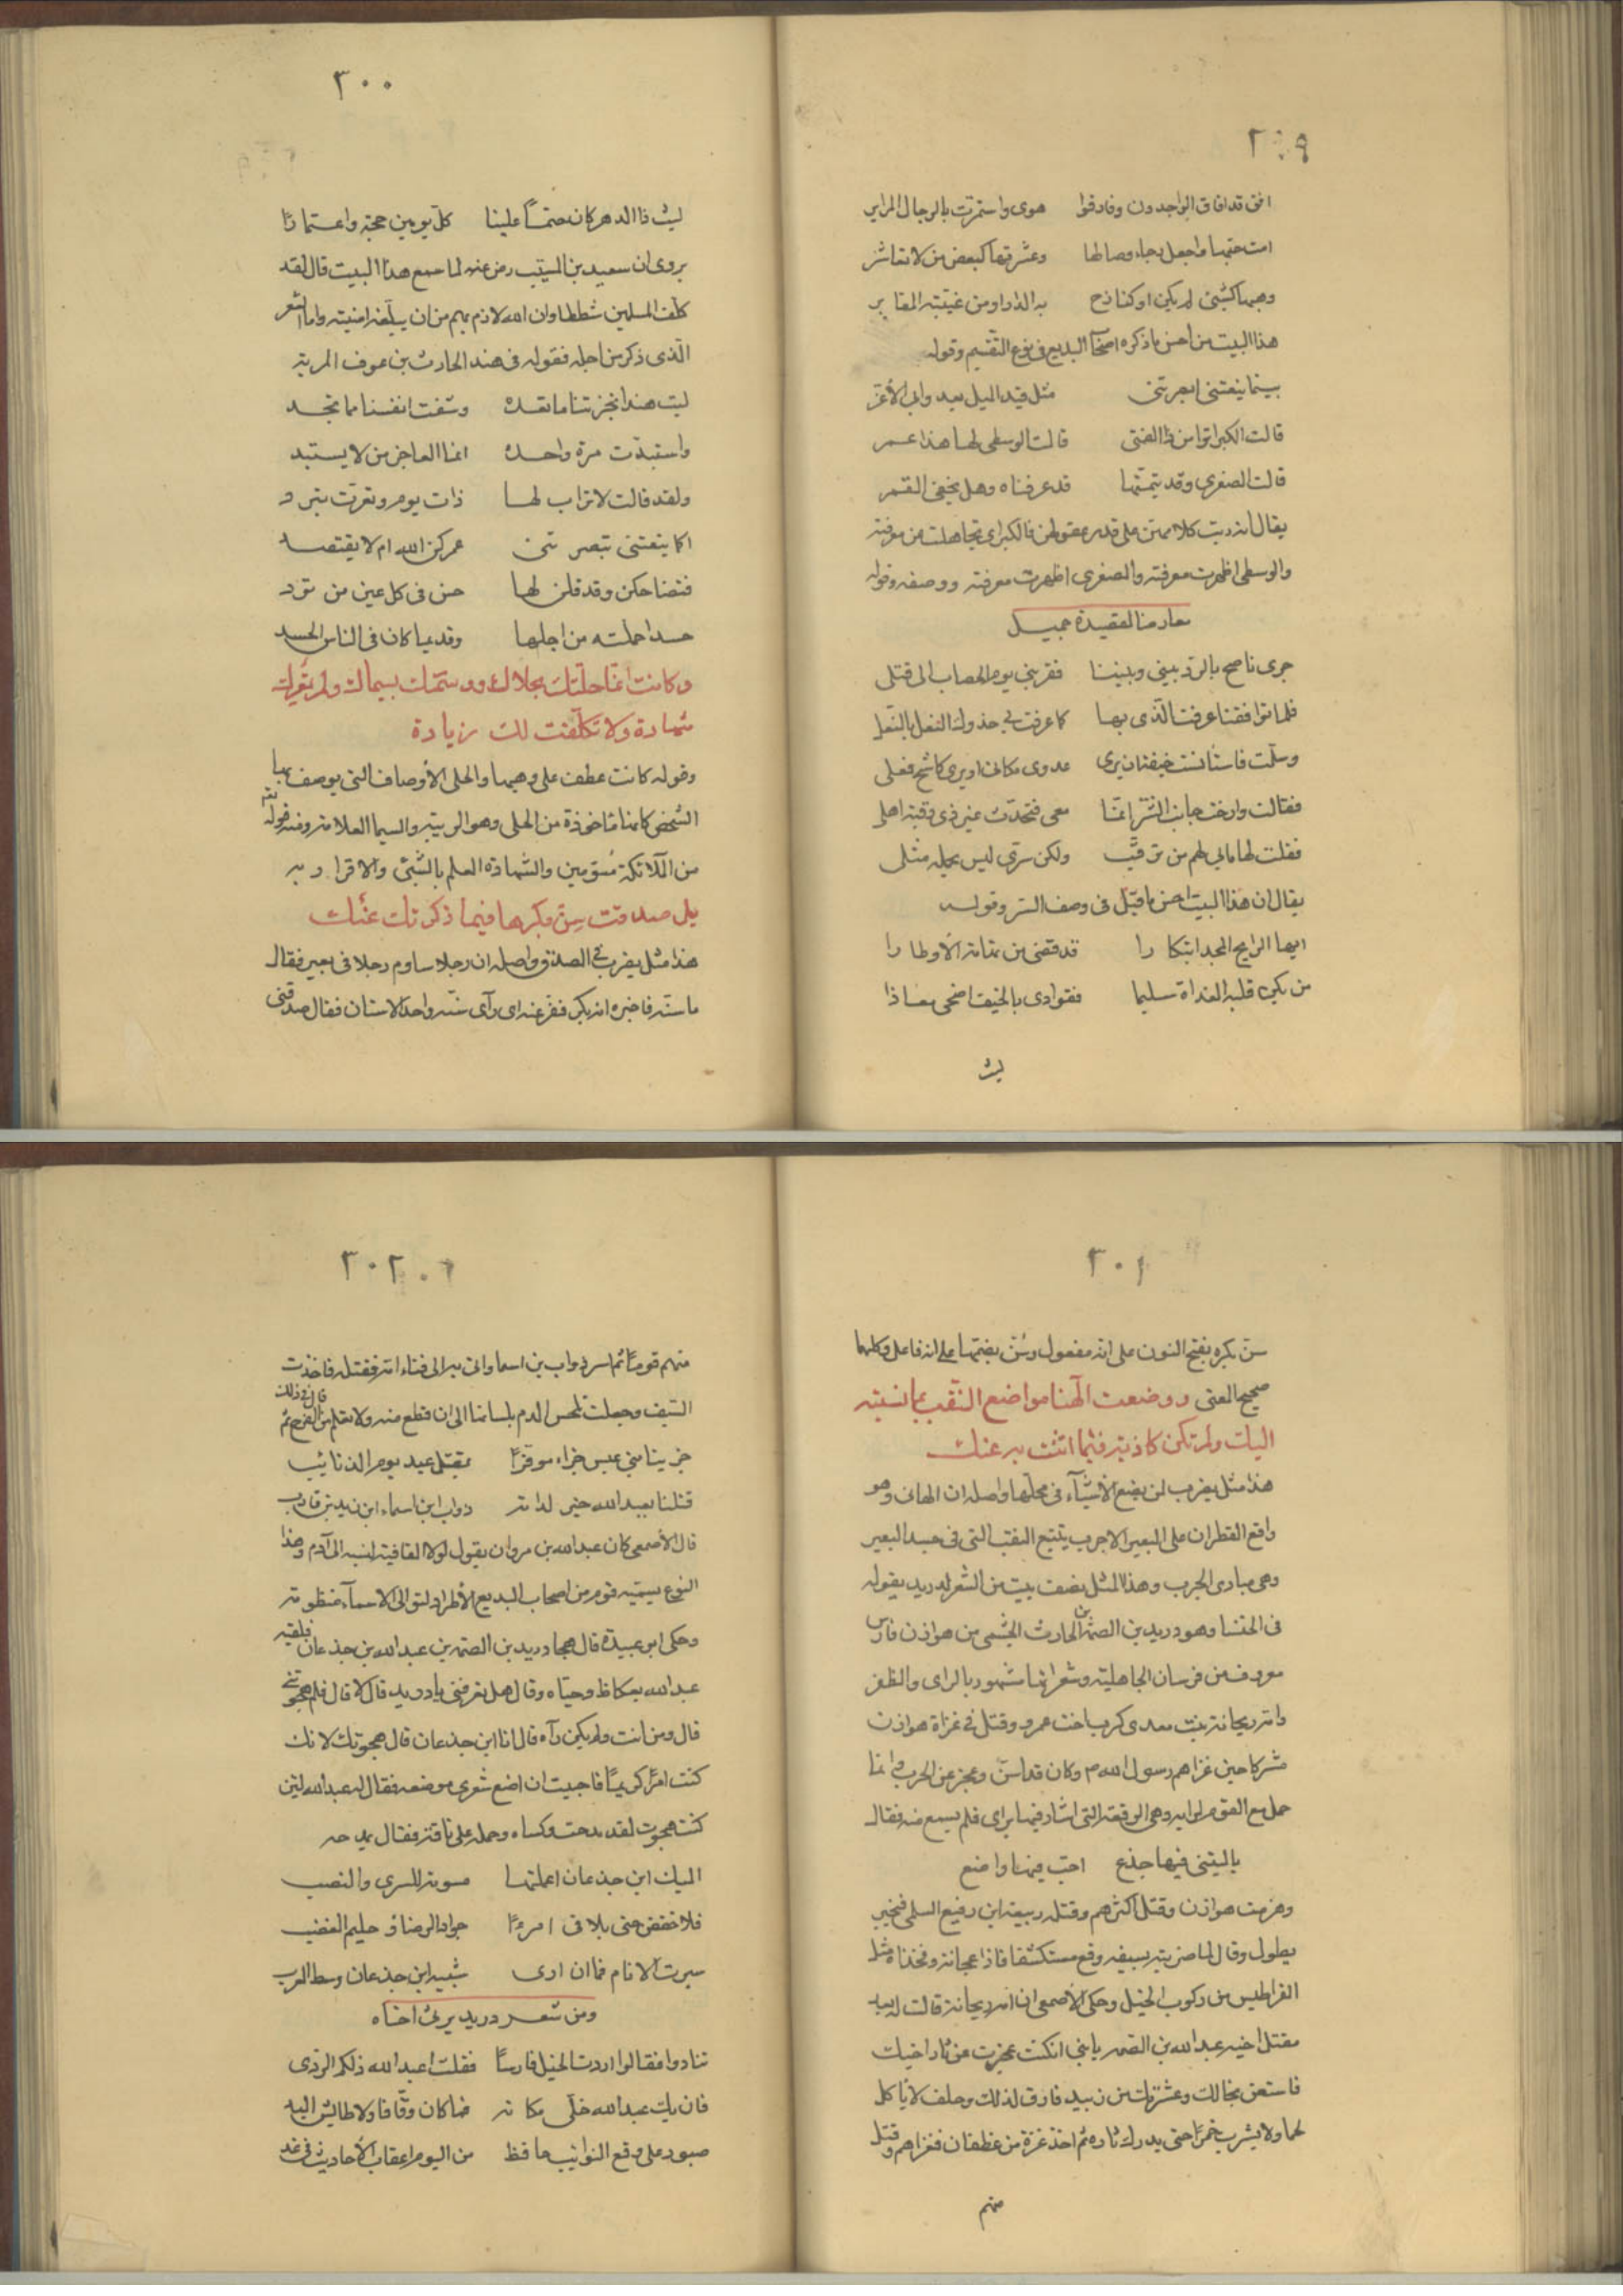 ٢٩٩
افق قد افاق الواجدون وفارقوا هوى واستمرت بالرجال المراير
امت حبها واجعل رجاء وصالها وعشرتها كبعض من لا تعاشر
وهبها كشئ لم يكن او كنازح به الدار او من غيبته المقابر
هذا البيت من احسن ما ذكره اصحاب البديع فى نوع التقسيم وقوله
بينما ينعتننى ابصرننى مثل قيد الميل يعدو بى الأغر
قالت الكبرا تراسن ذا الفتى قالت الوسطى لها هذا عمر
قالت الصغرى وقد تيمتها قد عرفناه وهل يخفى القمر
يقال انه رتب كلامهن على قدر عقولهن فالكبرى تجاهلت عن معرفته
والوسطى اظهرت معرفته والصغرى اظهرت معرفته ووصفه وقوله
معارضا لقصيدة جميل
جرى ناصح بالود بينى وبينها فقربنى يوم الحصاب الى قتلى
فلما تواقفنا عرفت الذى بها كما عرفت بى حذوك النعل بالنعل
وسلمت فاستأنست خيفة ان يرى عدوى مكانى او يرى كاشح فعلى
فقالت وارخت جانب الستر انما معى فتحدث غير ذى رقبة اهلى
فقلت لها ما بى لهم من ترقب ولكن سرى ليس يحمله مثلى
يقال ان هذا البيت احسن ما قيل فى وصف الستر وقوله
ايها الرايح المجد ابتكارا قد قضى من تهامة الأوطارا
من يكن قلبه الغداة سليما ففوادى بالخيف اضحى معاذا
ليت
٣٠٠
ليت ذا الدهر كان حتماً علينا كل يومين حجة واعتمارًا
يروى ان سعيد بن المسيب رضى عنه لما سمع هذا البيت قال لقد
كلف المسلمين شططا وان الله لارم بهم من ان يبلغه امنيته واما الشعر
الذى ذكر من اجله فقوله فى هند الحارث بن عوف المرية
ليت هندا انجزتنا ما تعد وشفت انفسنا مما تجد
واستبدت مرة واحدة انما العاجز من لا يستبد
ولقد قالت لاتراب لها ذات يوم وتعرت تبترد
اكما ينعتنى تبصرننى عمركن الله ام لا يقتصد
فتضاحكن وقد قلن لها حسن فى كل عين من تود
حسدا حملنه من اجلها وقديما كان فى الناس الحسد
وكانت انما حلتك بحلاك ووسمتك بسيماك ولم تعرك
شهادة ولا تكلفت لك زيادة
وقوله كانت عطف على وهبها والحلى الأوصاف التى يوصف بها
الشخص كانها ماخوذة من الحلى وهو الزينة والسيما العلامة ومنه قوله تع
من الملائكة مسومين والشهادة العلم بالشئ والاقرار به
بل صدقت سن بكرها فيما ذكرتك عنك
هذا مثل يضرب فى الصدق واصله ان رجلا ساوم رجلا فى بعير فقال
ما سنه فاخبره انه بكر ففر عنه اى رأى سنه واحد الاسنان فقال صدقنى
٣٠١
سن بكره بفتح النون على انه مفعول وسن بضمها على انه فاعل وكلاهما
صحيح المعنى ووضعت الهنا مواضع النقب بما نسبته
اليك ولم تكن كاذبة فيما اثنت به عنك
هذا مثل يضرب لمن يضع الأشياء فى محلها واصله ان الهانى وهو
واضع القطران على البعير الاجرب يتتبع النقب التى فى جسد البعير
وهى مبادى الجرب وهذا المثل نصف بيت من الشعر لدريد يقوله
فى الخنسا وهو دريد بن الصمة بن الحارث الجشمى من هوازن فارس
معروف من فرسان الجاهلية وشعرائها مشهور بالراى والظفر
وامه ريحانة بنت معدى كرب اخت عمرو وقتل فى غزاة هوازن
مشركا حين غزاهم رسول الله ص وكان قد اسن وعجز عن الحرب وانما
حمل مع القوم لرايه وهى الوقعة التى اشار فيها براى فلم يسمع منه فقال
ياليتنى فيها جذع اخب فيها واضع
وهزمت هوازن وقتل اكثرهم وقتله ربيعة ابن رفيع السلمى فى خبر
يطول وقال لما ضربته بسيفه وقع مستكشفا فاذا عجانه وفخذاه مثل
القراطيس من ركوب الخيل وحكى الأصمعى ان امه ريحانة قالت له بعد
مقتل اخيه عبد الله بن الصمه يا بنى ان كنت عجزت عن ثار اخيك
فاستعن بخالك وعشيرتك من زبيد فارق لذلك وحلف لا يأكل
لحما ولا يشرب خمرًا حتى يدرك ثاره ثم اخذ غزة من غطفان فغزاهم وقتل
منهم
٣٠٢
منهم قومًا ثم اسر ذواب بن اسما واتى به الى فناء امه فقتله فاخذت
السيف وجعلت تلحس الدم بلسانها الى ان قطع منه ولا تعلم من الفرح ثم قال فى ذلك
جزينا بنى عبس جزاء موفرًا بمقتل عبد الله يوم الذنائب
قتلنا بعبد الله خير لداته ذواب ابن اسماء ابن زيد بن قارب
قال الأصمعى كان عبد الله بن مروان يقول لولا القافية لنسبه الى آدم وهذا
النوع يسميه قوم من اصحاب البديع الأطراد لتوالى الاسماء منظومة
وحكى ابو عبيدة قال هجا دريد بن الصمه بن عبد الله بن جذعان فلقيه
عبد الله بعكاظ وحياه وقال هل تعرفنى يا دريد قال لا قال فلم هجوتنى
قال ومن انت ولم يكن رآه قال انا ابن جذعان قال هجوتك لانك
كنت امرًا كريمًا فاحببت ان اضع شعرى موضعه فقال له عبد الله لئن
كنت هجوت لقد مدحت وكساه وحمله على ناقة فقال يمدحه
اليك ابن جذعان اعملتها مسومة للسرى والنصب
فلا خفض حتى يلاقى امرءًا جواد الرضا وحليم الغضب
سبرت الانام فما ان ارى شبيه ابن جذعان وسط العرب
ومن شعر دريد يرثى اخاه
تنادوا فقالوا اردت الخيل فارسًا فقلت اعبد الله ذلكم الردى
فان يك عبد الله خلى مكانه فما كان وقافا ولا طائش اليد
صبور على وقع النوائب حافظ من اليوم اعقاب الأحاديث فى غد